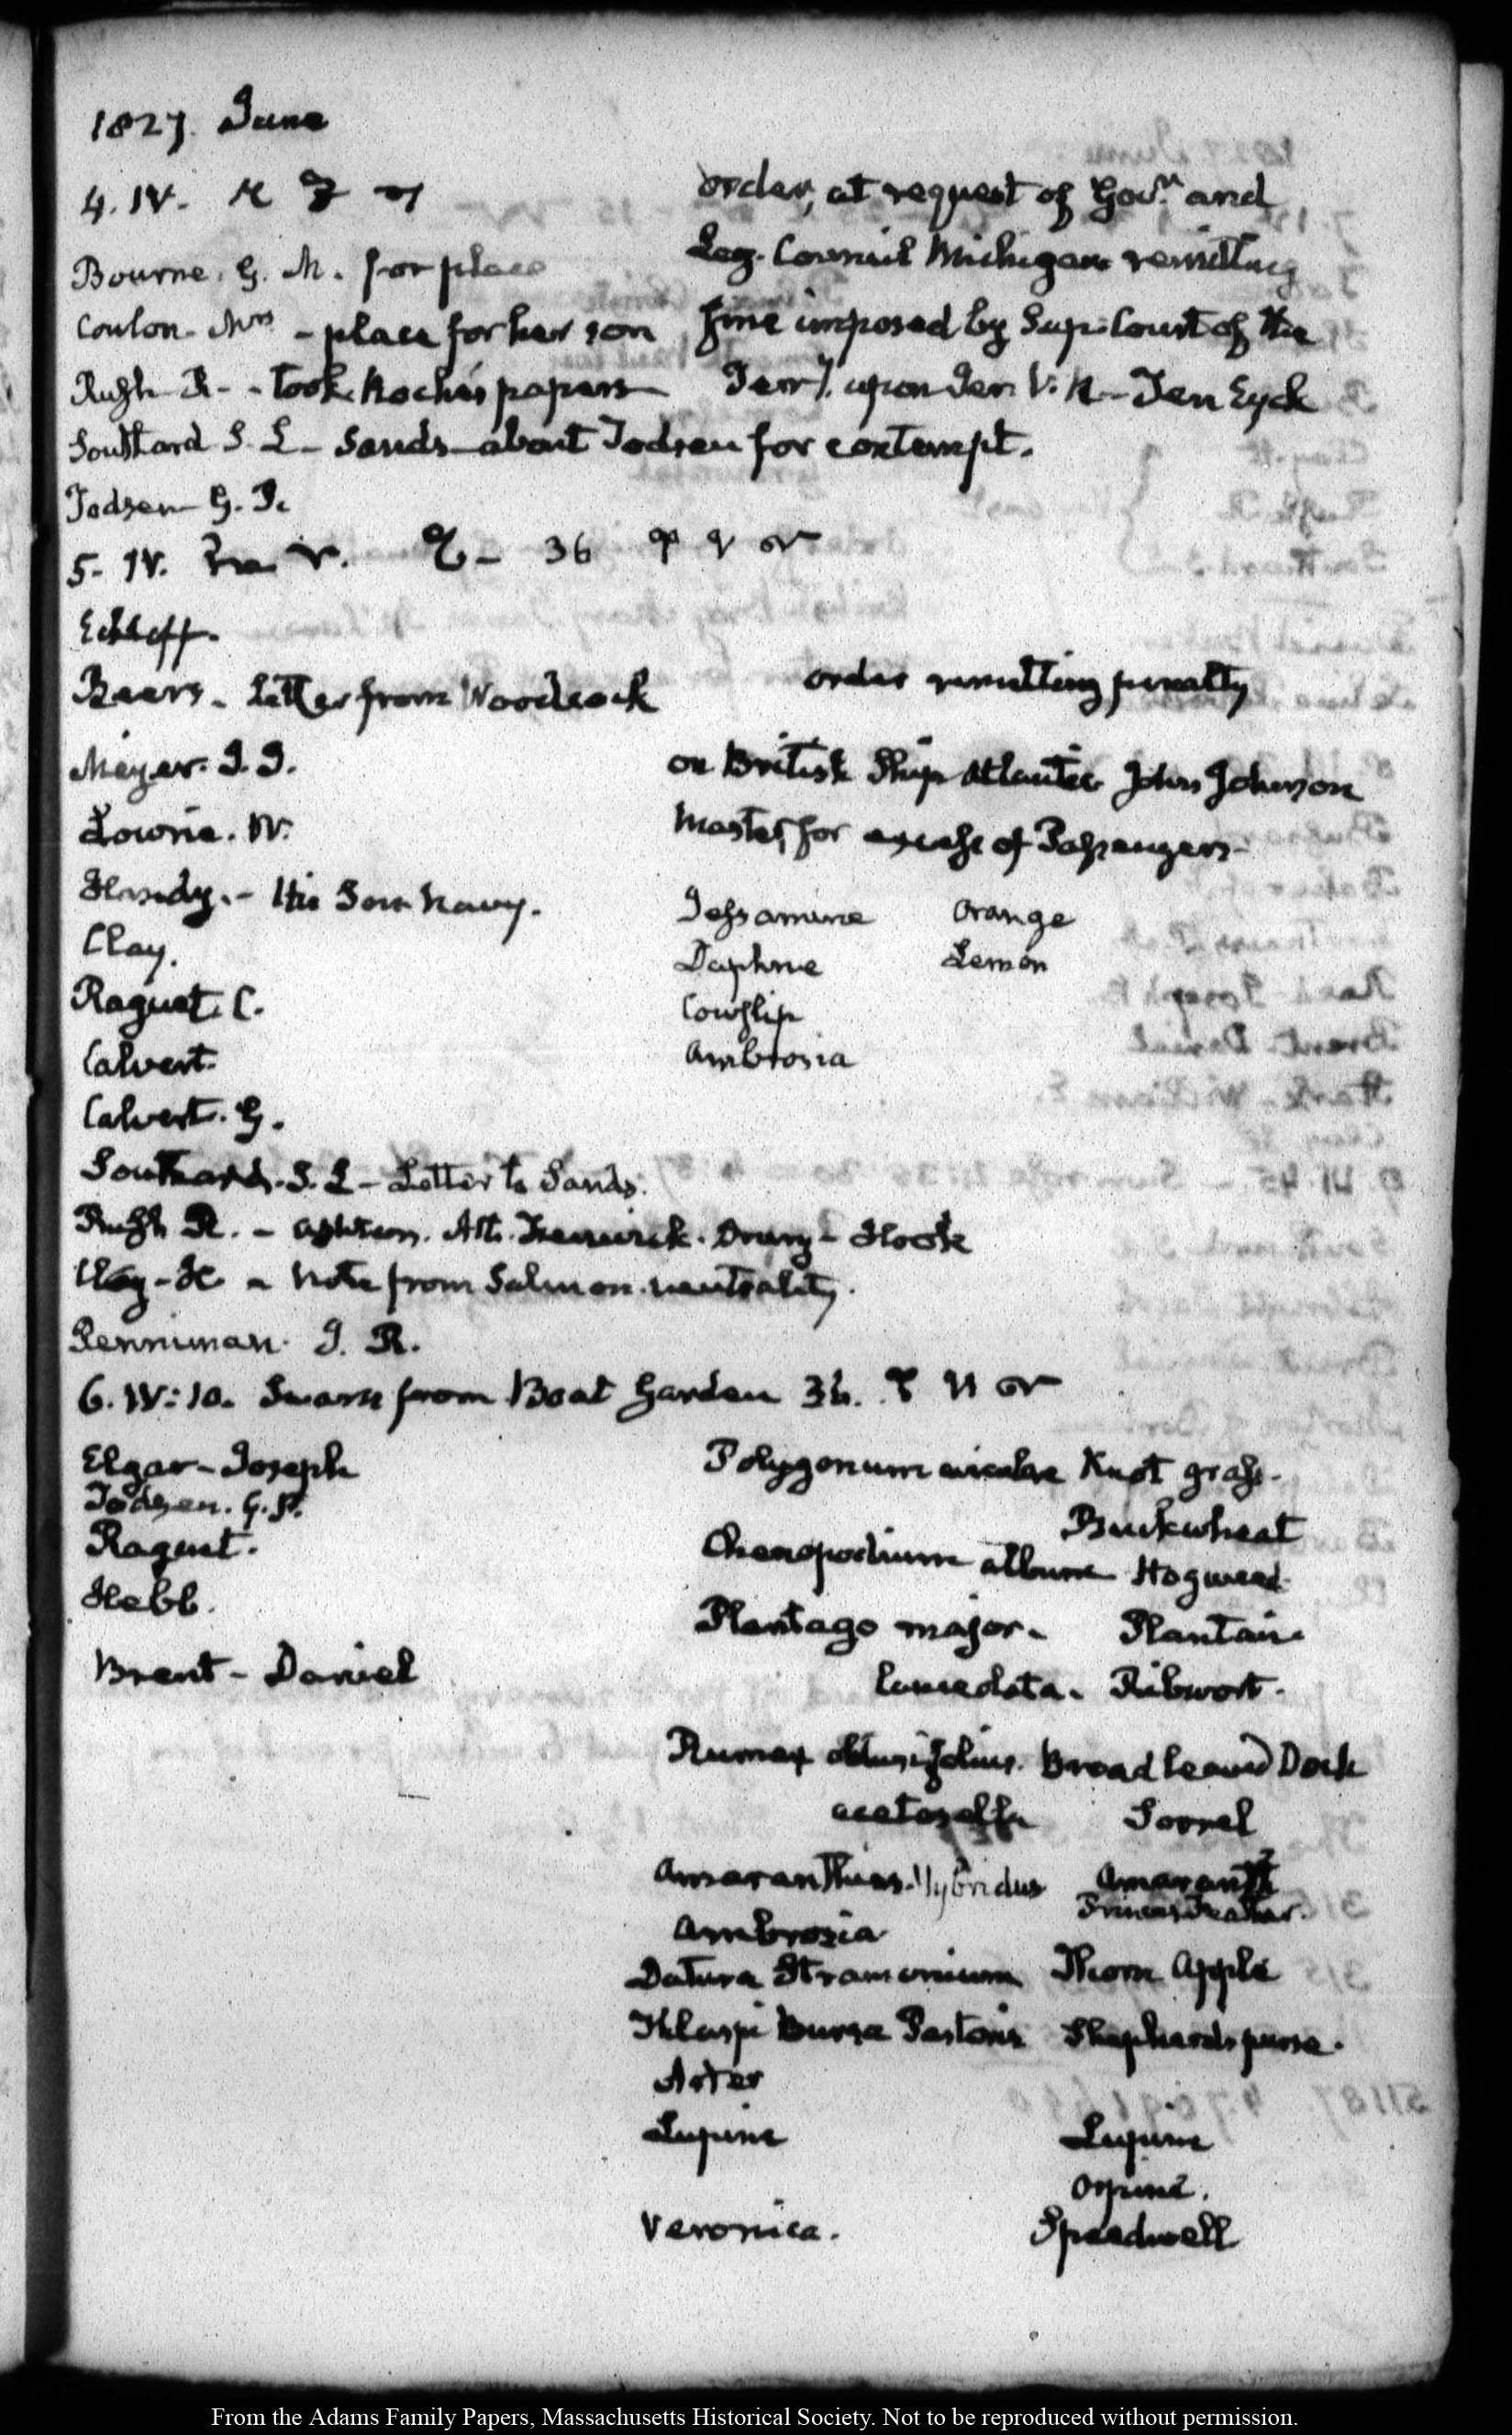 1827. June
4. IV.
order, at request of Govr. and
Bourne. G. M. for place
Leg. Council Michigan remitting
Coulon. Mrs - place for her son
fine imposed by Sup. Court of the
Rush R - took Roche's papers
Terry. upon Gen V. R - Ten Eyck
Southard S. L - Sands - about Todsen
for contempt.
Todsen G. P.
5. IV. 36
Beers. letter from Woodcock
order remitting penalty
Meyer. J. J.
on British Ship Atlantic John Johnson
Lowrie. W.
Master, for excess of Passengers
Handy. - His Son Navy.
Jessamine Orange
Clay.
Daphne Lemon
Raguet. C.
Cowslip
Calvert.
Ambrosia
Calvert. G.
Southard. S. L - Letter to Sands.
Rush R. - Drury - Hook
Clay - H. - Note from Salmon. neutrality.
Penniman. J. R.
6. IV:10. Swam from Boat Garden 36.
Elgar - Joseph
Polygonum aviculare Knot grass.
Todsen. G. P.
Buckwheat
Raguet.
Chenopodium album Hogweed
Hebb.
Plantago major. Plantain
Brent - Daniel
lanceolata. Ribwort.
Rumex obtusifolius. Broad leaved Dock
acetosella Sorrel
Amaranthus. Hybridus Amaranth
Princes Feather.
Ambrosia
Datura Stramonium Thorn Apple
Thlaspi Bursa Pastoris Shepherds purse.
Aster
Lupine Lupine
Orpine.
Veronica. Speedwell
From the Adams Family Papers, Massachusetts Historical Society. Not to be reproduced without permission.